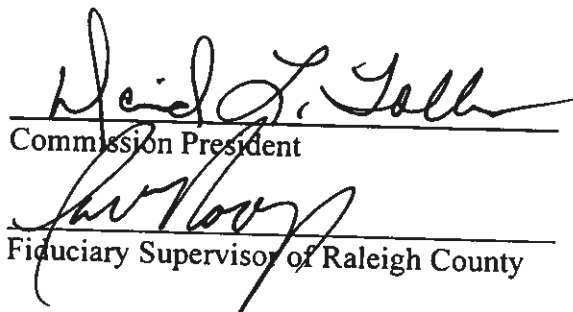 David L. Tolliver
Commission President
Fiduciary Supervisor of Raleigh County